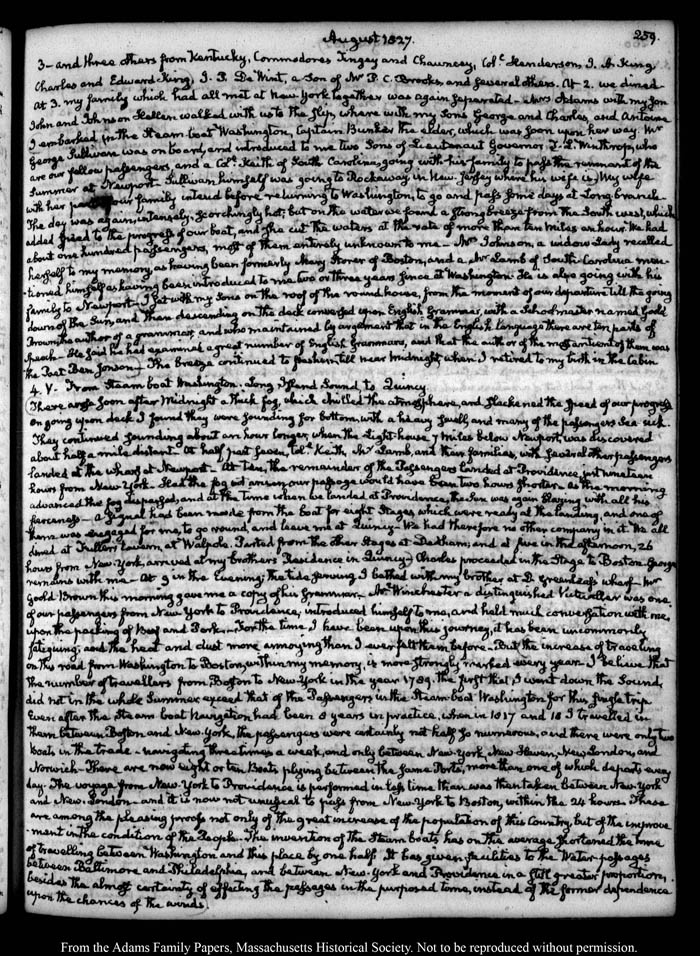 August 1827.
259.
3 - and three others from Kentucky, Commodores Tingey and Chauncey, Col.^c Henderson, J. A. King,
Charles and Edward King, J. P. De Wint, a Son of Mr P. C. Brooks, and several others. At 2. we dined
At 3. my family which had all met at New York together was again separated - Mrs Adams with my Son
John and Johnson Hellen walked with us to the Slip, where with my Sons George and Charles, and Antoine
I embarked in the Steam boat Washington, Captain Bunker the elder, which was soon upon her way. Mr
George Sullivan was on board, and introduced to me two Sons of Lieutenant Governor T. L. Winthrop, who
are our fellow passengers, and a Col.^c Keith of South Carolina, going with his family to pass the remnant of the
Summer at Newport. Sullivan himself was going to Rockaway, in New Jersey where his wife is. My wife
with her part of our family intend before returning to Washington, to go and pass some days at Long branch.
The day was again, intensely, scorchingly hot; but on the water we found a strong breeze from the South west, which
added speed to the progress of our boat, and she cut the waters at the rate of more than ten miles an hour. We had
about one hundred passengers, most of them entirely unknown to me - Mrs Johnson, a widow Lady recalled
herself to my memory, as having been formerly Mary Storer of Boston, and a Mr Lamb of South-Carolina men-
-tioned himself as having been introduced to me two or three years since at Washington. He is also going with his
family to Newport - I sat with my Sons on the roof of the round house, from the moment of our departure till the going
down of the Sun, and then descending on the deck conversed upon English Grammar, with a Schoolmaster named Goold
Brown, the author of a grammar, and who maintained by argument that in the English language there are ten parts of
speech - He said he had examined a great number of English Grammars, and that the author of the most ancient of them was
the Poet Ben Jonson - The breeze continued to freshen till near Midnight, when I retired to my birth in the Cabin
4. V. From Steam boat Washington. Long Island Sound, to Quincy.
There arose soon after Midnight a thick fog, which chilled the atmosphere, and slackened the speed of our progress
On going upon deck I found they were sounding for bottom, with a heavy swell, and many of the passengers Sea sick.
They continued sounding about an hour longer, when the Light house 7 miles below Newport, was discovered
about half a mile distant. At half past seven, Col.^c Keith, Mr Lamb, and their families, with several other passengers
landed at the wharf at Newport - At ten, the remainder of the Passengers landed at Providence, just nineteen
hours from New York. Had the fog not arisen, our passage would have been two hours shorter. As the morning
advanced the fog dispersed, and at the time when we landed at Providence, the Sun was again blazing with all his
fierceness - A signal had been made from the boat for eight Stages, which were ready at the landing, and one of
them was engaged for me, to go round, and leave me at Quincy. We had therefore no other company in it. We all
dined at Fuller's tavern, at Walpole. Parted from the other Stages at Dedham; and at five in the afternoon, 26
hours from New York, arrived at my brother's Residence in Quincy. Charles proceeded in the Stage to Boston. George
remains with me - At 9 in the Evening; the tide serving, I bathed with my brother at D. Greenleaf's wharf - Mr
Goold Brown this morning gave me a copy of his Grammar. Mr Winchester a distinguished Victualler was one
of our passengers from New York to Providence, introduced himself to me, and held much conversation with me,
upon the packing of Beef and Pork - For the time I have been upon this journey, it has been uncommonly
fatiguing; and the heat and dust more annoying than I ever felt them before. But the increase of travelling
on this road from Washington to Boston, within my memory, is more strongly marked every year. I believe that
the number of travellers from Boston to New-York in the year 1789. the first that I went down the Sound,
did not in the whole Summer exceed that of the Passengers in the Steam boat Washington for this single trip
Even after the Steam boat Navigation had been 8 years in practice, when in 1817 and 18 I travelled in
them between Boston and New York, the passengers were certainly not half so numerous, and there were only two
boats in the trade - navigating three times a week, and only between New York, New Haven, New London, and
Norwich - There are now eight or ten Boats plying between the same Ports, more than one of which departs every
day. The voyage from New York to Providence is performed in less time than was then taken between New York
and New London - and it is now not unusual to pass from New York to Boston, within the 24 hours - These
are among the pleasing proofs not only of the great increase of the population of this Country, but of the improve
-ment in the condition of the People. The invention of the Steam boats has on the average shortened the time
of travelling between Washington and this place by one half. It has given facilities to the Water-passages
between Baltimore and Philadelphia, and between New-York and Providence in a still greater proportion,
besides the almost certainty of effecting the passages in the purposed time, instead of the former dependence
upon the chances of the winds.
From the Adams Family Papers, Massachusetts Historical Society. Not to be reproduced without permission.